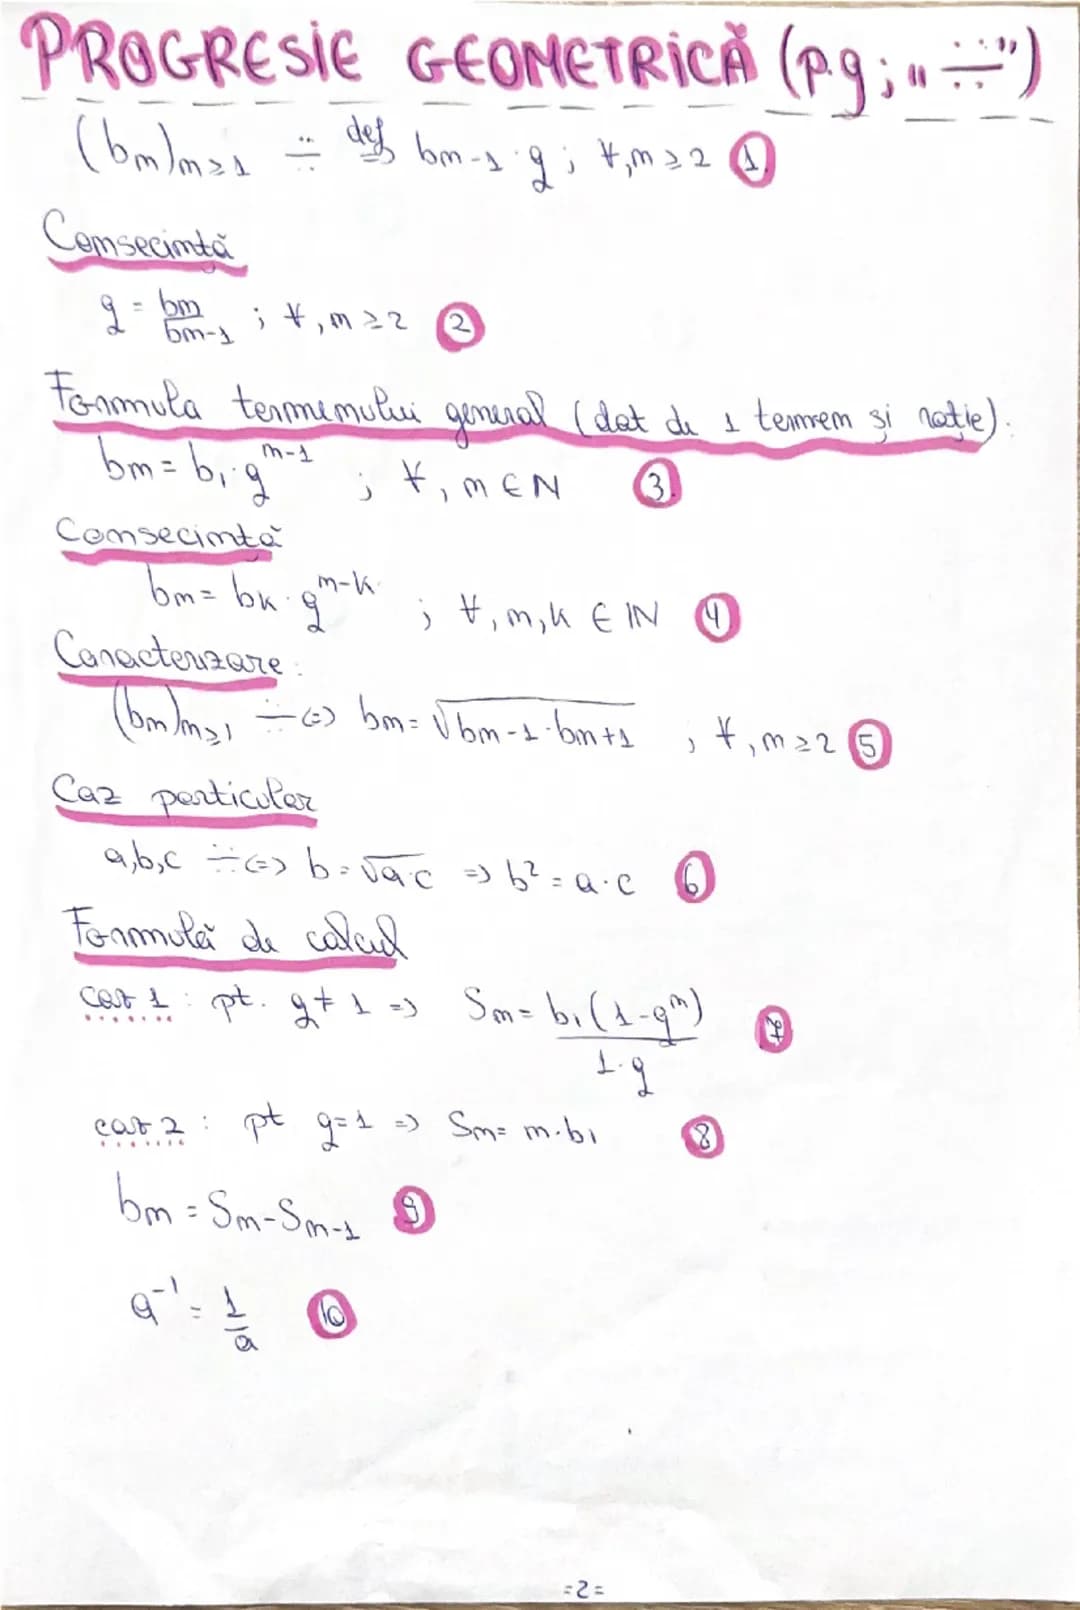 PROGRESIE GEOMETRICĂ (p.g; „∺")
(bn)n≥1 ∺ def bn-1·q; ∀,n≥2 ①
Consecință
q = bn/bn-1 ; ∀,n≥2 ②
Formula termenului general (dat de 1 termen și rație).
bn = b1·q^n-1 ; ∀,n∈N ③
Consecință
bn = bk·q^n-k ; ∀,n,k ∈ ℕ ④
Caracterizare:
(bn)n≥1 ∺ <=> bn = √bn-1·bn+1 , ∀,n≥2 ⑤
Caz particular
a,b,c ∺ <=> b = √a·c => b² = a·c ⑥
Formulă de calcul
caz 1 : pt. q≠1 => Sn = b1(1-q^n)/1-q ⑦
caz 2 : pt q=1 => Sn = n·b1 ⑧
bn = Sn-Sn-1 ⑨
a^-1 = 1/a ⑩
=2=